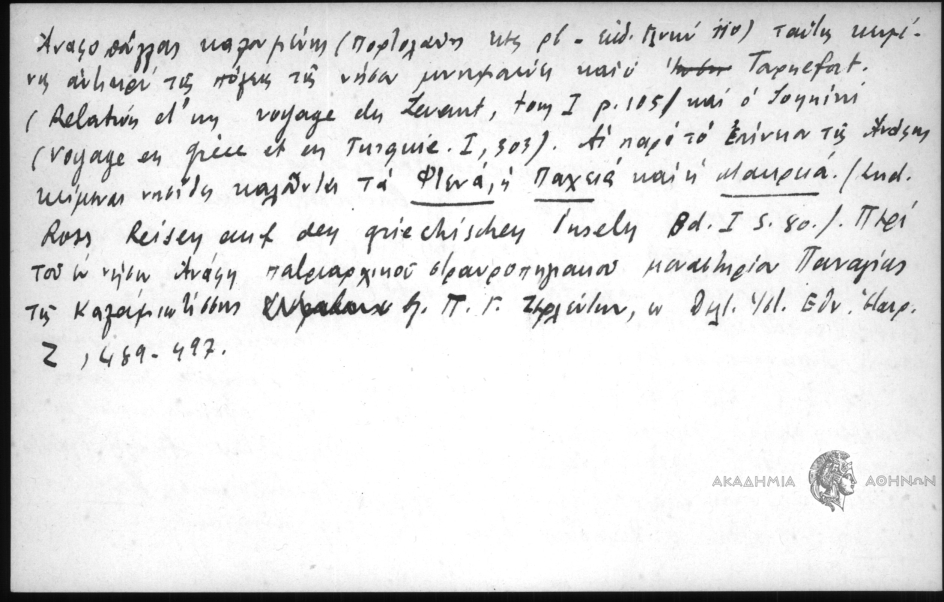 Ἀναφοπούλλας καλουμένης (Πορτολάνος
ταύτης κειμέ-
νης ἀντικρὺ τῆς πόλεως τῆς νήσου μνημονεύει καὶ ὁ Tournefort.
(Relation d'un voyage du Levant, tom I p. 105) καὶ ὁ Sonnini
(Voyage en grèce et en Turquie. I, 303). Αἱ παρὰ τὸ ἐπίνειον τῆς Ἀνάφης
κείμεναι νησῖδες καλοῦνται τὰ Φτενά, ἡ Παχειά καὶ ἡ Μακρυά. (Lud.
Ross Reisen auf den griechischen Inseln Bd. I S. 80.). Περὶ
τοῦ ἐν νήσῳ Ἀνάφῃ πατριαρχικοῦ σταυροπηγιακοῦ μοναστηρίου Παναγίας
τῆς Καλαμιωτίσσης βλ. Π. Γ. Ζερλέντην, ἐν Δελτ. Ἱστ. Ἐθν. Ἑταιρ.
Ζ, 489-497.
ΑΚΑΔΗΜΙΑ ΑΘΗΝΩΝ